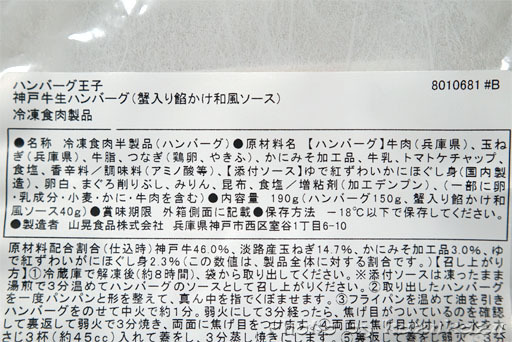 ハンバーグ王子
神戸牛生ハンバーグ(蟹入り餡かけ和風ソース)
8010681 #B
冷凍食肉製品
●名称 冷凍食肉半製品(ハンバーグ)●原材料名【ハンバーグ】牛肉(兵庫県)、玉ね
ぎ(兵庫県)、牛脂、つなぎ(鶏卵、やきふ)、かにみそ加工品、牛乳、トマトケチャップ、
食塩、香辛料/調味料(アミノ酸等)、【添付ソース】ゆで紅ずわいかにほぐし身(国内製
造)、卵白、まぐろ削りぶし、みりん、昆布、食塩/増粘剤(加工デンプン)、(一部に卵
・乳成分・小麦・かに・牛肉を含む)●内容量 190g(ハンバーグ150g、蟹入り餡かけ和
風ソース40g)●賞味期限 外箱側面に記載●保存方法 −18℃以下で保存してください
●製造者 山晃食品株式会社 兵庫県神戸市西区室谷1丁目6-10
原材料配合割合(仕込時)神戸牛46.0%、淡路産玉ねぎ14.7%、かにみそ加工品3.0%、ゆ
で紅ずわいがにほぐし身2.3%(この数値は、製品全体に対する割合です。)【召し上がり
方】①冷蔵庫で解凍後(約8時間)、袋から取り出してください。※添付ソースは凍ったまま
湯煎で3分温めてハンバーグのソースとして召し上がりください。②取り出したハンバーグ
を一度パンパンと形を整えて、真ん中を指でくぼませます。③フライパンを温めて油を引き
ハンバーグをのせて中火で約1分。弱火にして3分経ったら、焦げ目がついているのを確認
して裏返して弱火で3分焼き、両面に焦げ目をつけ
さじ3杯(約45cc)入れて蓋をし、3分蒸し焼きにします